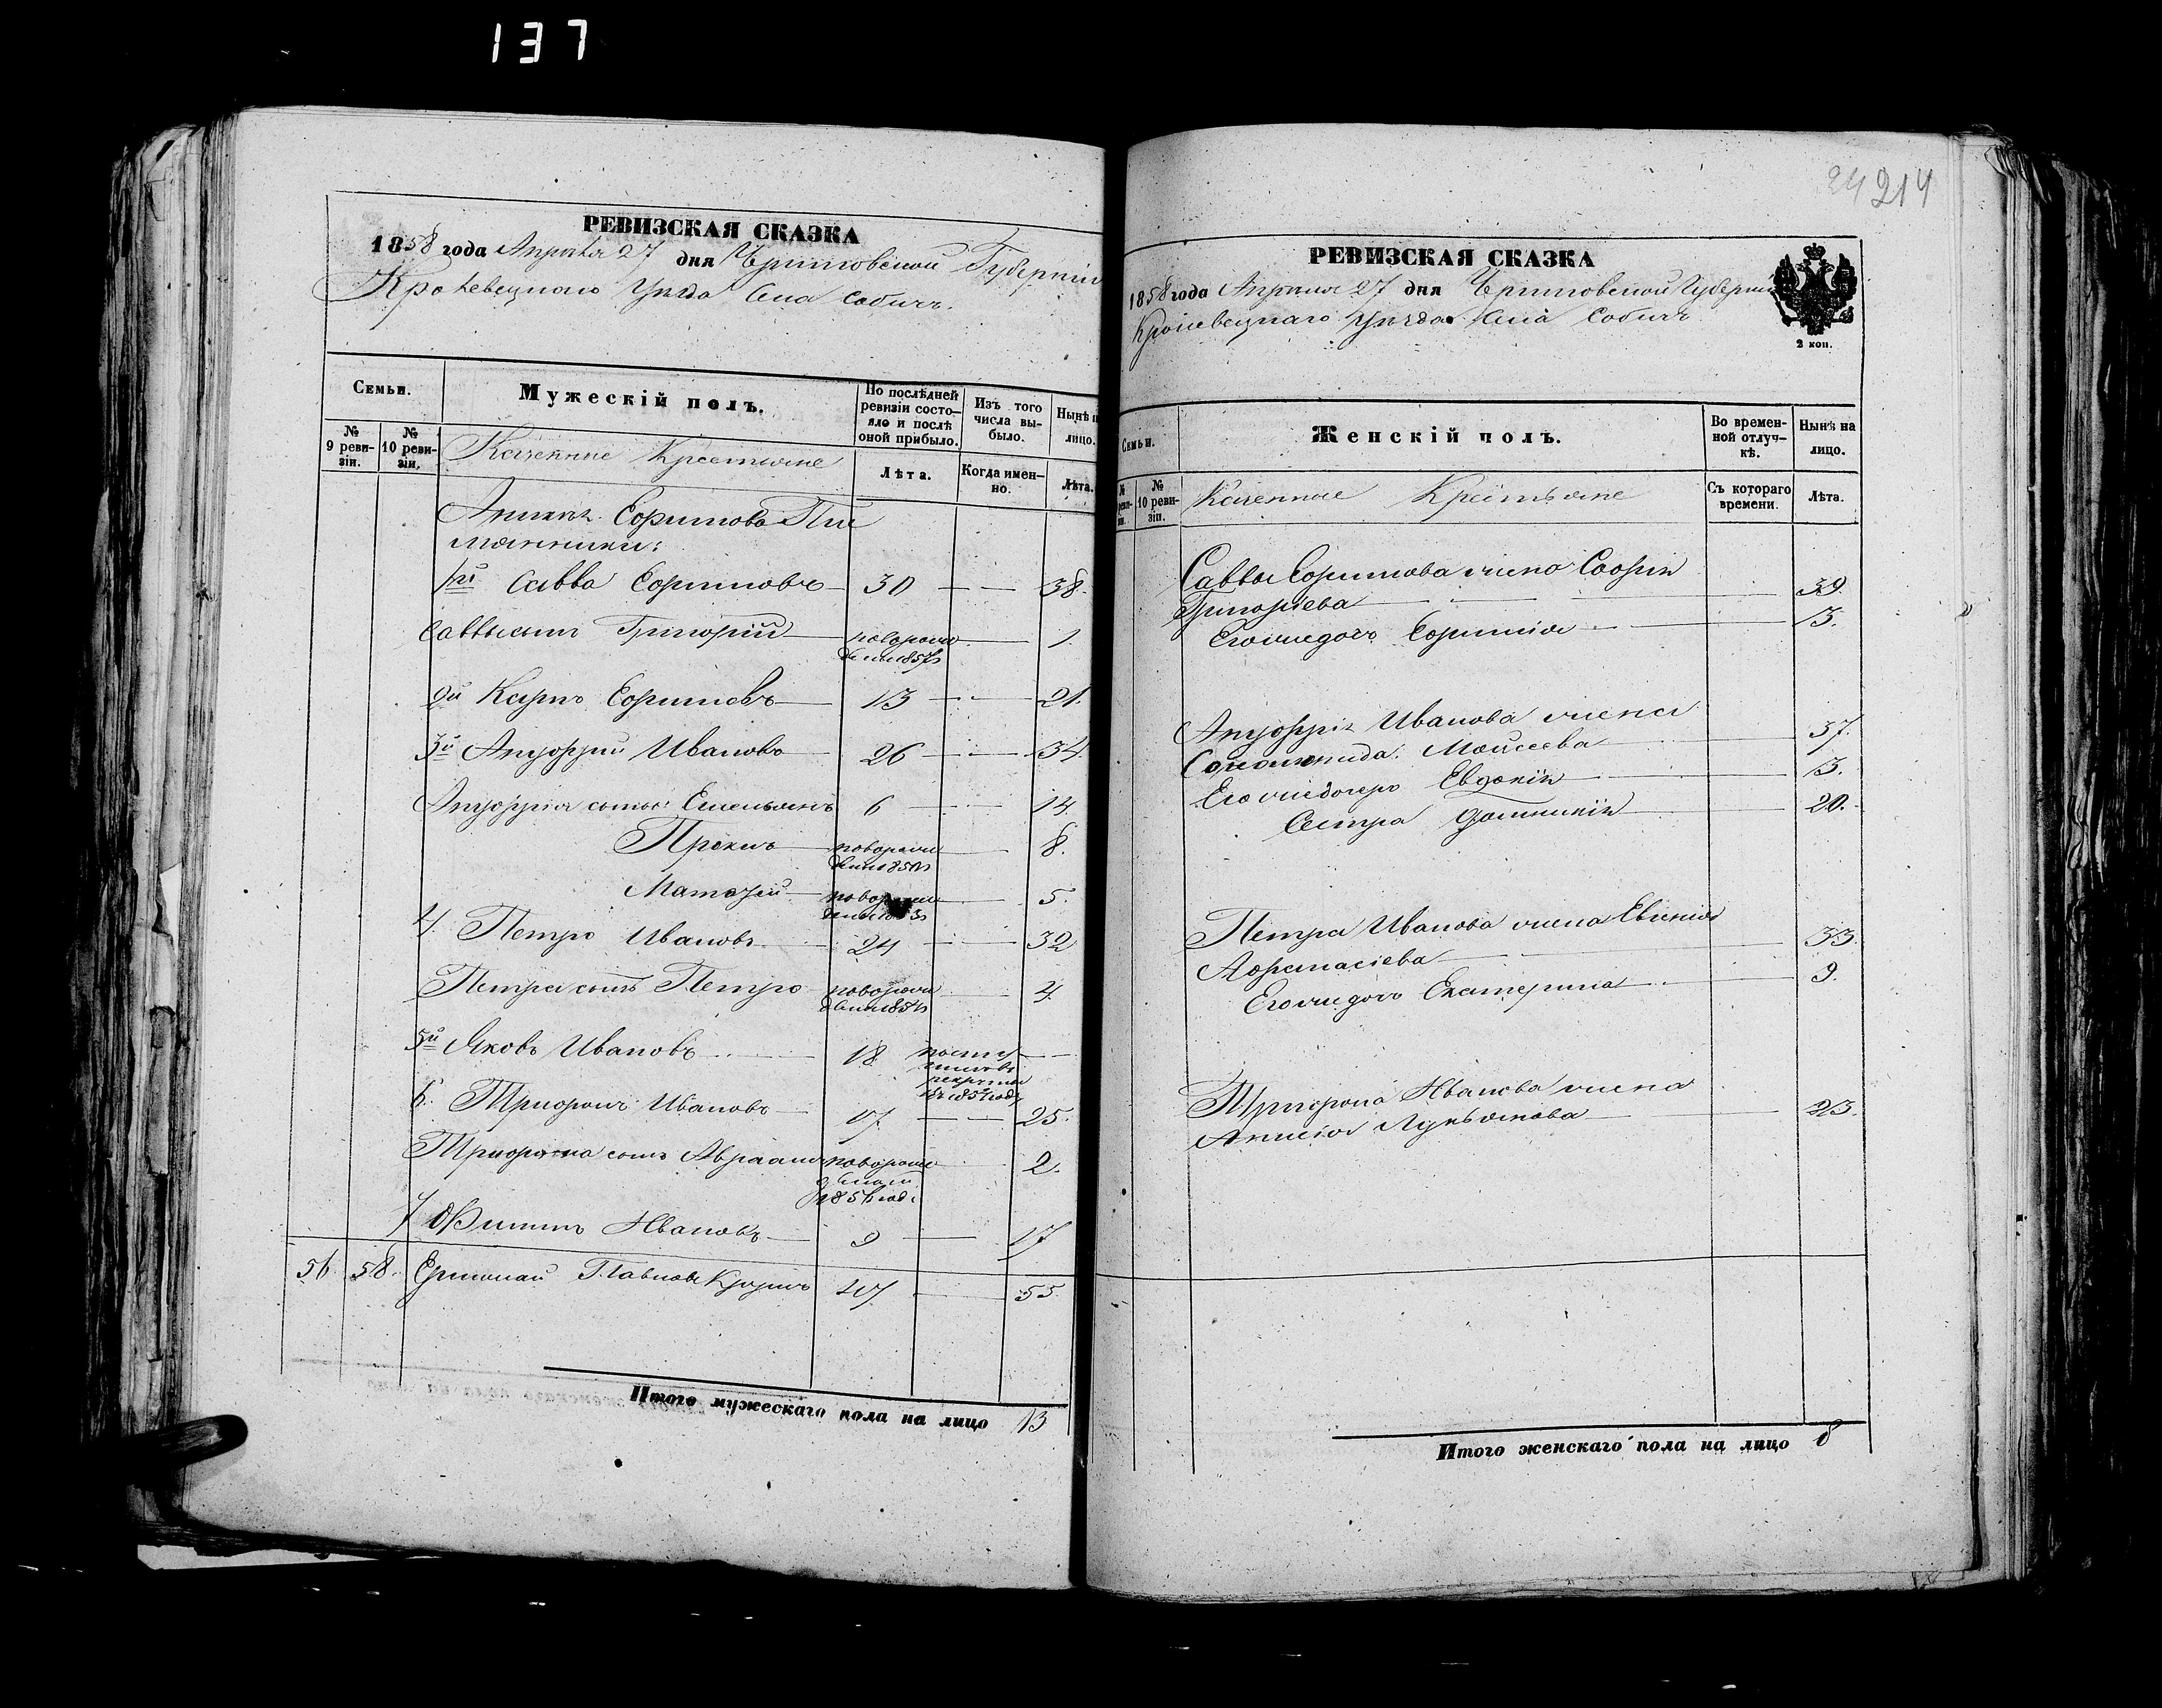 137
РЕВИЗСКАЯ СКАЗКА
1858 года Апреля 27 дня Черниговской Губерніи
Кролевецкаго Уезда Села Собичъ.
Семьи.
Мужескій полъ.
По последней ревизіи состояло и после оной прибыло.
Изъ того числа выбыло.
Ныне
лицо.
№ 9 ревизіи.
№ 10 ревизіи.
Казенные Крестьяне
Лѣта.
Когда именно.
Лѣта.
Ефимова Племянники:
1й Савва Ефимовъ 30 38.
Саввы сынъ Григорій новорожденъ 1857 1
2й Карпъ Ефимовъ 13 21.
3й Андрей Ивановъ 26 34.
сынъ Емельянъ 6 14.
Прокипъ новорожден 1850 8.
Матвей новорожден 1853 5.
4. Петро Ивановъ 24 32
Петра сынъ Петро новорожден 1854 4.
5й Яковъ Ивановъ 18 поступилъ въ рекруты в 185 годе
6. Трифонъ Ивановъ 17. 25.
Трифона сынъ Авраамъ новорожденъ 1856 годе 2.
7 Филипъ Ивановъ 9 17
56 58. Ермолай Павловъ 47 55
Итого мужескаго пола на лицо 13
24 214
РЕВИЗСКАЯ СКАЗКА
1858 года Апреля 27 дня Черниговской Губерніи
Кролевецкаго Уезда Села Собичъ
2 коп.
Семьи.
Женскій полъ.
Во временной отлучкѣ.
Нынѣ на лицо.
№ ревизіи.
№ 10 ревизіи.
Казенные Крестьяне
Съ котораго времени.
Лѣта.
Саввы Ефимова жена Софія
Григоріева 39.
Его же дочь Ефимія 13.
Иванова жена
Моисеева 37.
Его же дочерь Евдокія 13.
Сестра Домникія 20.
Петра Иванова жена Евгенія
Афанасіева 33.
Его же дочь Екатерина 9.
Трифона Иванова жена
Анисія Лукьянова 23.
Итого женскаго пола на лицо 8